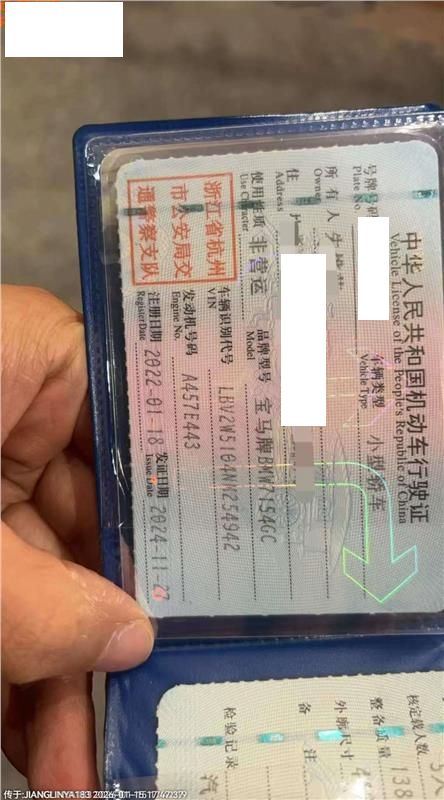 中华人民共和国机动车行驶证
Vehicle License of the People's Republic of China
号牌号码
Plate No.
车辆类型 小型轿车
Vehicle Type
所有人
Owner
住
Address
使用性质 非营运
Use Character
品牌型号 宝马牌BMW7154GC
Model
浙江省杭州
市公安局交
通警察支队
车辆识别代号
VIN
LBV2W5104NN254942
发动机号码 A457E443
Engine No.
注册日期 2022-01-18
Register Date
发证日期 2024-11-23
Issue Date
核定载人数
整备质量 138
外廓尺寸
备 注
检验记录
传于:JIANGLINYA183 2026-01-15